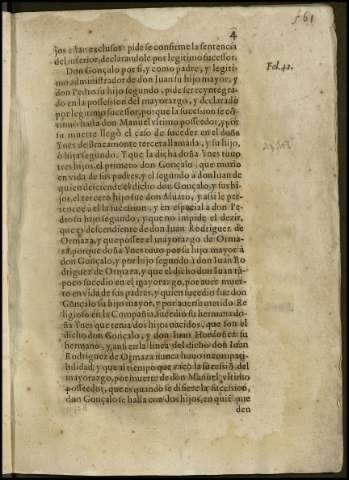 561
4
jos esàn exclusos: pide se confirme la sentencia
del inferior, declarandole por legitimo sucessor.
Don Gonçalo por sì, y como padre, y legiti-
mo administrador de don Iuan su hijo mayor, y
don Pedro su hijo segundo, pide ser reyntegra-
do en la possession del mayorazgo, y declarado
por legitimo sucessor, porque la sucession se cõ-
tinuò hasta don Manuel vltimo posseedor, y por
su muerte llegò el caso de suceder en el doña
Ynes de Bracamonte tercera llamada, y su hijo,
ò hija segunda. Y que la dicha doña Ynes tuuo
tres hijos, el primero don Gonçalo, que murio
en vida de sus padres, y el segundo a don Iuan de
quien deciende el dicho don Gonçalo, y sus hi-
jos, el tercero hijo fue don Aluaro, y assi le per-
tenece a el la sucession, y en especial a don Pe-
dro su hijo segundo, y que no impide el dezir,
que es descendiente de don Iuan Rodriguez de
Ormaza, y que possee el mayorazgo de Orma-
za, porque doña Ynes tuuo por su hijo mayor à
don Gonçalo, y por hijo segundo à don Iuan Ro-
driguez de Ormaza, y que el dicho don Iuan tã-
poco sucedio en el mayorazgo, por auer muer-
to en vida de sus padres, y quien sucedio fue don
Gonçalo su hijo mayor, y por auerse metido Re-
ligioso en la Compañia, sucedio su hermana do-
ña Ynes que tenia dos hijos nacidos, que son el
dicho don Gonçalo, y don Iuan Hordoñez su
hermano, y assi en la linea del dicho don Iuan
Rodriguez de Ormaza nunca huuo incompati-
bilidad, y que al tiempo que vacò la sucession del
mayorazgo, por muerte de don Manuel vltimo
posseedor, que es quando se difiere la sucession,
don Gonçalo se halla con dos hijos, en quiẽ que
den
Fol. 42.